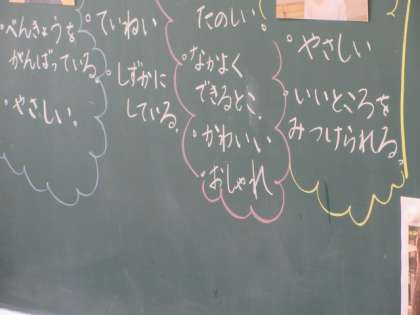 。べんきょうを
がんばっている。
・やさしい。
。ていねい
。しずかに
している。
たのしい。
。なかよく
できるとこ。
・かわいい
・おしゃれ
。やさしい
・いいところを
みつけられる。